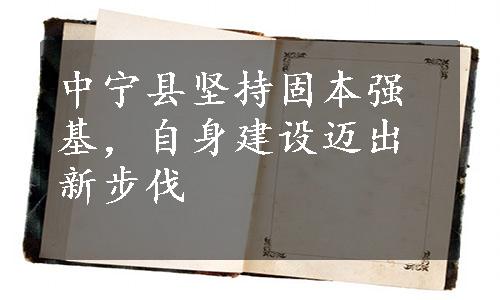 中宁县坚持固本强
基，自身建设迈出
新步伐